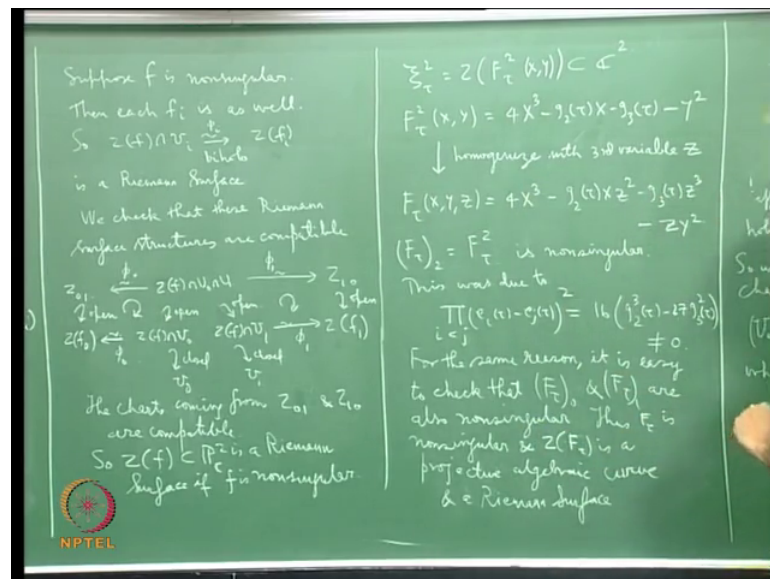 Suppose f is nonsingular.
Then each fi is as well.
So Z(f)∩Ui ≃ Z(fi)
φi
biholo
is a Riemann Surface
We check that these Riemann
surface structures are compatible
Z01 ←φ0 Z(f)∩U0∩U1 φ1→ Z10
open open open open
Z(f0) ←φ0 Z(f)∩U0 Z(f)∩U1 φ1→ Z(f1)
closed closed
U0 U1
The charts coming from Z01 & Z10
are compatible
So Z(f) ⊂ P²_C is a Riemann
Surface if f is nonsingular.
ξ²_τ = Z(F²_τ(x,y)) ⊂ C²
F²_τ(x,y) = 4X³ - g2(τ)X - g3(τ) - Y²
↓ homogenize with 3rd variable Z
F_τ(X,Y,Z) = 4X³ - g2(τ)XZ² - g3(τ)Z³
- ZY²
(F_τ)2 = F²_τ is nonsingular.
This was due to
∏ i<j (ei(τ) - ej(τ))² = 16(g2³(τ) - 27g3²(τ))
≠ 0
For the same reason, it is easy
to check that (F_τ)0 & (F_τ)1 are
also nonsingular. Thus F_τ is
nonsingular & Z(F_τ) is a
projective algebraic curve
& a Riemann Surface
So
NPTEL